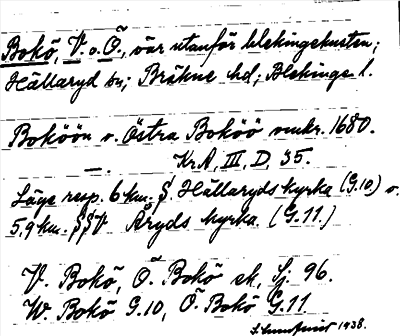 Bokö, V. o. Ö., öar utanför blekingekusten;
Hällaryd sn; Bräkne hd; Blekinge l.
Boköön o. Östra Boköö omkr. 1680.
—. Kr.A, III, D, 35.
Läge resp. 6 km. S. Hällaryds kyrka (G.10) o.
5,9 km. SSV Åryds kyrka. (G.11.)
V. Bokö, Ö. Bokö ek, Sj. 96.
W. Bokö G.10, Ö. Bokö G.11
1938.